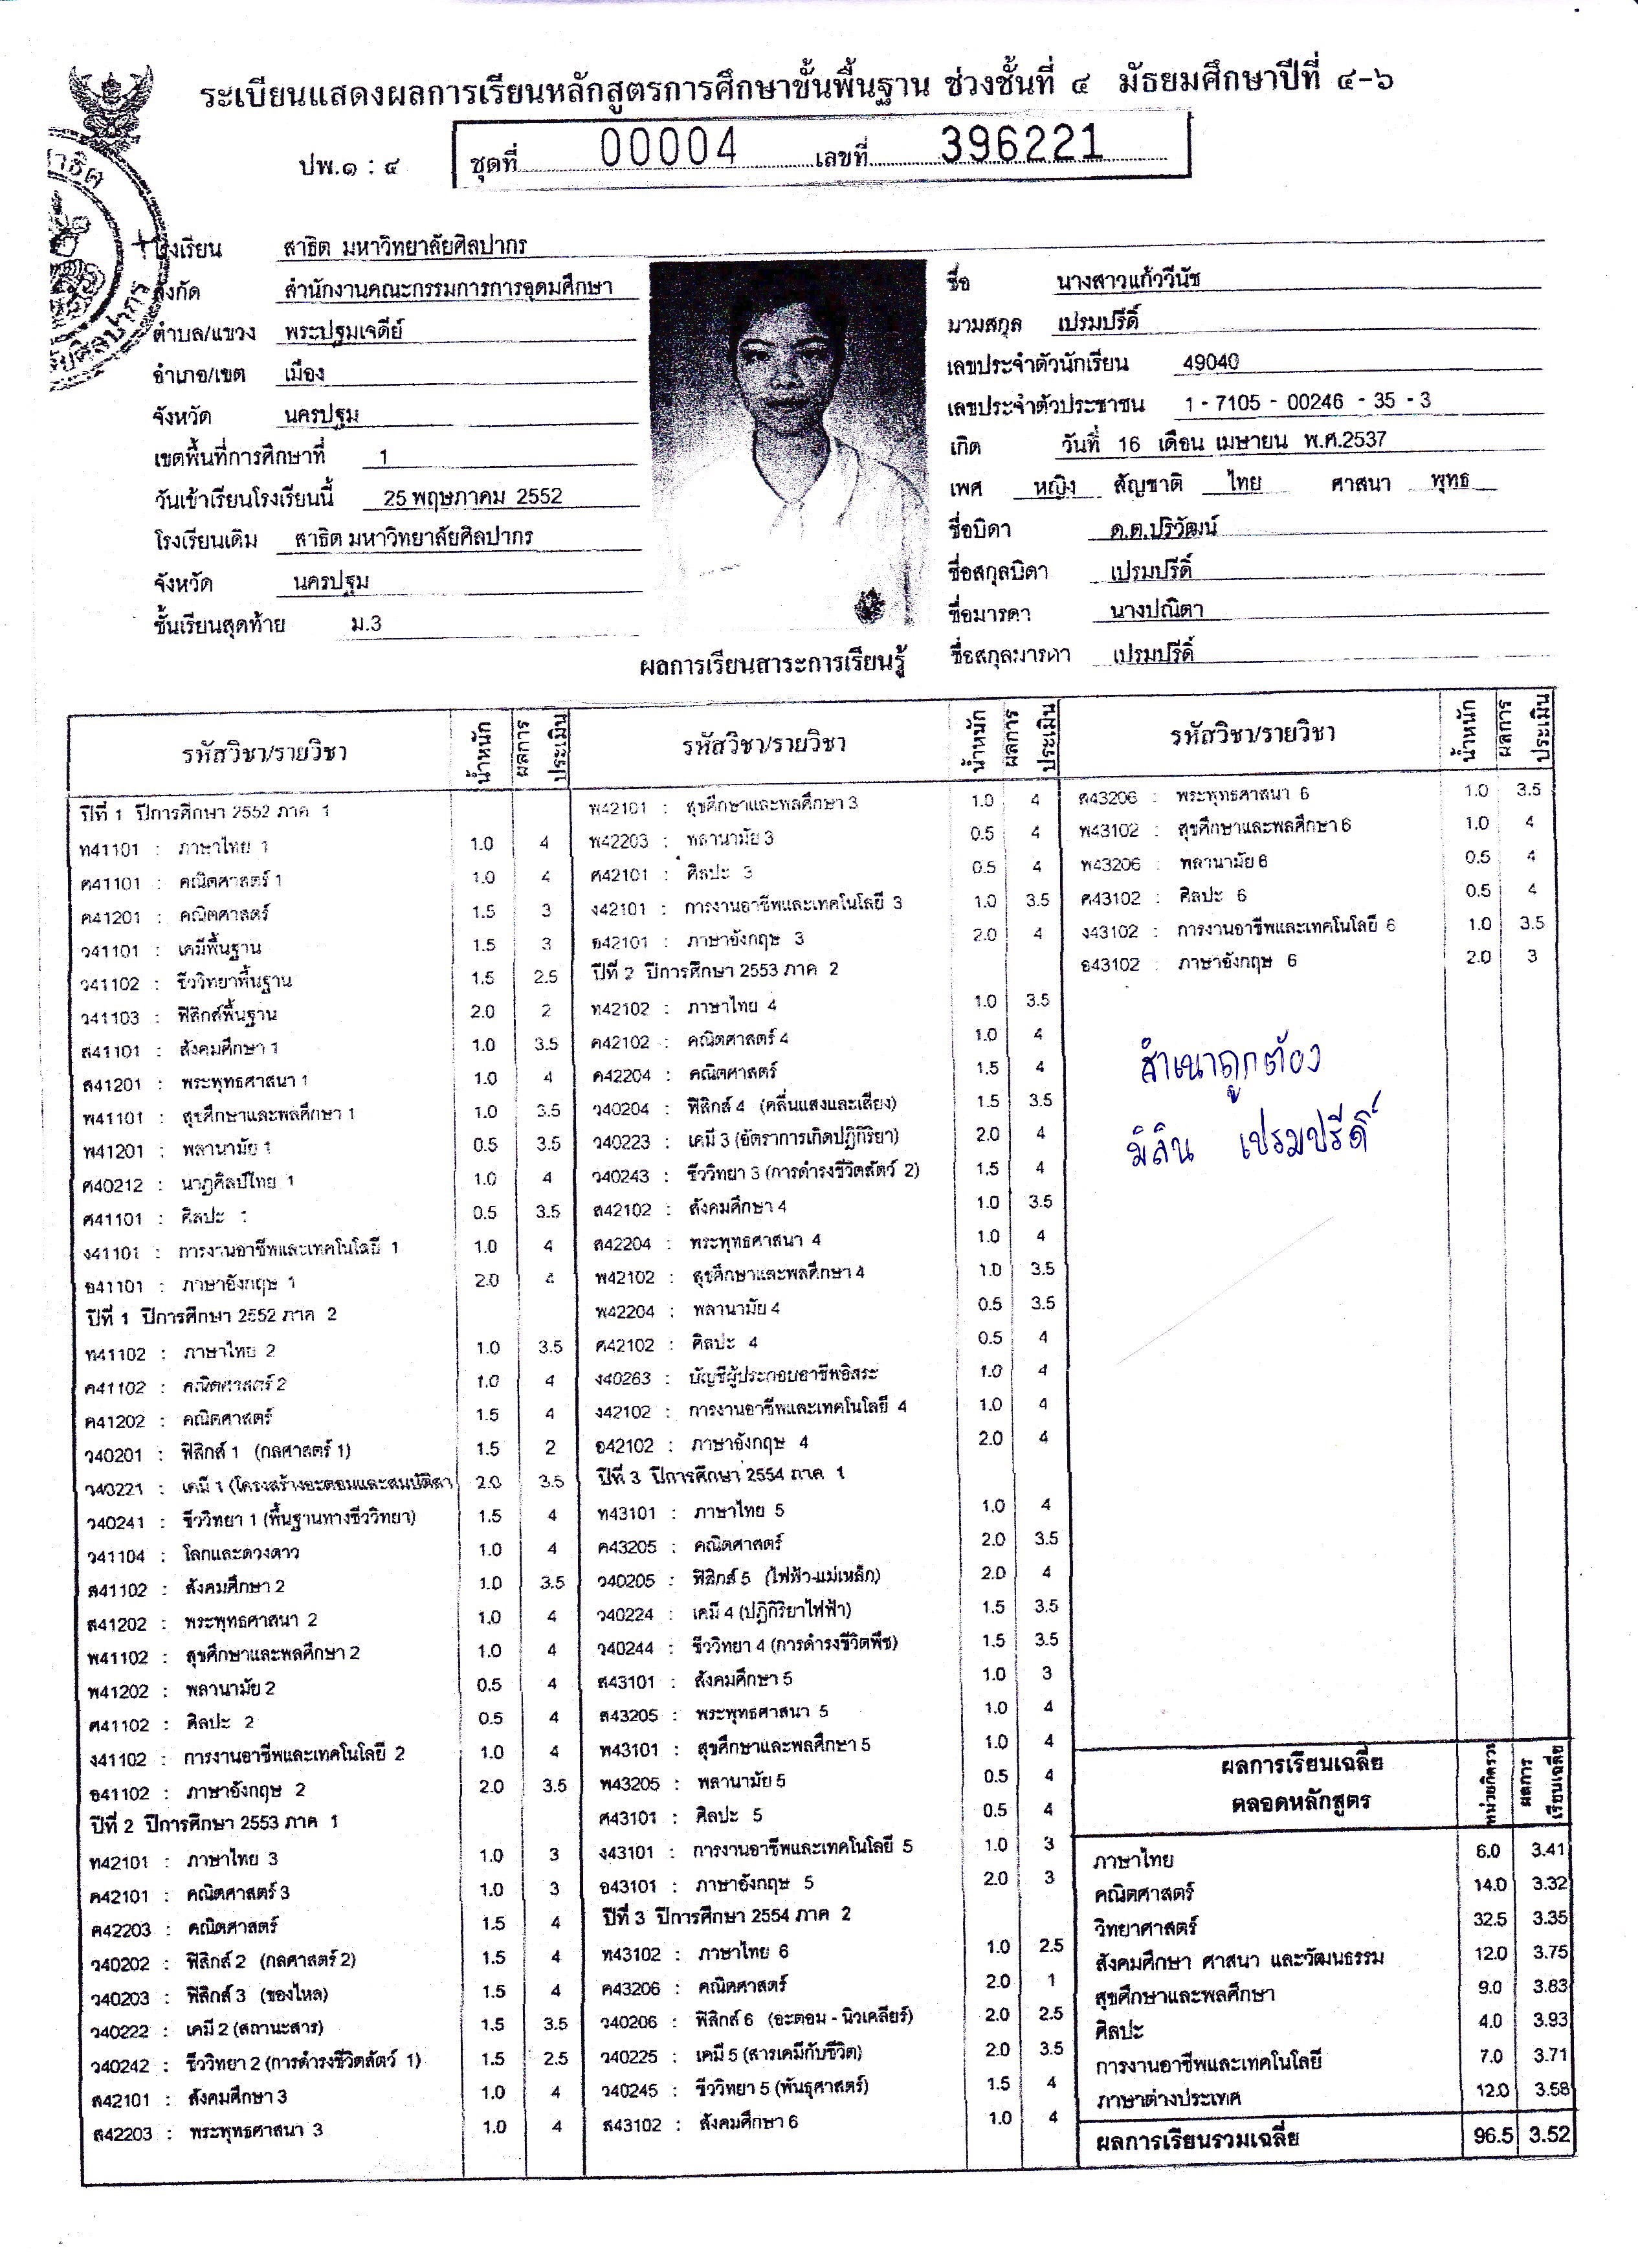 ระเบียนแสดงผลการเรียนหลักสูตรการศึกษาขั้นพื้นฐาน ช่วงชั้นที่ ๔ มัธยมศึกษาปีที่ ๔-๖
ปพ.๑ : ๔ ชุดที่ 00004 เลขที่ 396221
โรงเรียน สาธิต มหาวิทยาลัยศิลปากร
สังกัด สำนักงานคณะกรรมการการอุดมศึกษา
ตำบล/แขวง พระปฐมเจดีย์
อำเภอ/เขต เมือง
จังหวัด นครปฐม
เขตพื้นที่การศึกษาที่ 1
วันเข้าเรียนโรงเรียนนี้ 25 พฤษภาคม 2552
โรงเรียนเดิม สาธิต มหาวิทยาลัยศิลปากร
จังหวัด นครปฐม
ชั้นเรียนสุดท้าย ม.3
ชื่อ นางสาวแก้ววีนัช
นามสกุล เปรมปรีดิ์
เลขประจำตัวนักเรียน 49040
เลขประจำตัวประชาชน 1 - 7105 - 00246 - 35 - 3
เกิด วันที่ 16 เดือน เมษายน พ.ศ.2537
เพศ หญิง สัญชาติ ไทย ศาสนา พุทธ
ชื่อบิดา ด.ต.ปริวัฒน์
ชื่อสกุลบิดา เปรมปรีดิ์
ชื่อมารดา นางปณิตา
ชื่อสกุลมารดา เปรมปรีดิ์
ผลการเรียนสาระการเรียนรู้
รหัสวิชา/รายวิชา น้ำหนัก ผลการประเมิน
ปีที่ 1 ปีการศึกษา 2552 ภาค 1
ท41101 : ภาษาไทย 1 1.0 4
ค41101 : คณิตศาสตร์ 1 1.0 4
ค41201 : คณิตศาสตร์ 1.5 3
ว41101 : เคมีพื้นฐาน 1.5 3
ว41102 : ชีววิทยาพื้นฐาน 1.5 2.5
ว41103 : ฟิสิกส์พื้นฐาน 2.0 2
ส41101 : สังคมศึกษา 1 1.0 3.5
ส41201 : พระพุทธศาสนา 1 1.0 4
พ41101 : สุขศึกษาและพลศึกษา 1 1.0 3.5
พ41201 : พลานามัย 1 0.5 3.5
ศ40212 : นาฏศิลป์ไทย 1 1.0 4
ศ41101 : ศิลปะ 1 0.5 3.5
ง41101 : การงานอาชีพและเทคโนโลยี 1 1.0 4
อ41101 : ภาษาอังกฤษ 1 2.0 4
ปีที่ 1 ปีการศึกษา 2552 ภาค 2
ท41102 : ภาษาไทย 2 1.0 3.5
ค41102 : คณิตศาสตร์ 2 1.0 4
ค41202 : คณิตศาสตร์ 1.5 4
ว40201 : ฟิสิกส์ 1 (กลศาสตร์ 1) 1.5 2
ว40221 : เคมี 1 (โครงสร้างอะตอมและสมบัติสา 2.0 3.5
ว40241 : ชีววิทยา 1 (พื้นฐานทางชีววิทยา) 1.5 4
ว41104 : โลกและดวงดาว 1.0 4
ส41102 : สังคมศึกษา 2 1.0 3.5
ส41202 : พระพุทธศาสนา 2 1.0 4
พ41102 : สุขศึกษาและพลศึกษา 2 1.0 4
พ41202 : พลานามัย 2 0.5 4
ศ41102 : ศิลปะ 2 0.5 4
ง41102 : การงานอาชีพและเทคโนโลยี 2 1.0 4
อ41102 : ภาษาอังกฤษ 2 2.0 3.5
ปีที่ 2 ปีการศึกษา 2553 ภาค 1
ท42101 : ภาษาไทย 3 1.0 3
ค42101 : คณิตศาสตร์ 3 1.0 3
ค42203 : คณิตศาสตร์ 1.5 4
ว40202 : ฟิสิกส์ 2 (กลศาสตร์ 2) 1.5 4
ว40203 : ฟิสิกส์ 3 (ของไหล) 1.5 4
ว40222 : เคมี 2 (สถานะสาร) 1.5 3.5
ว40242 : ชีววิทยา 2 (การดำรงชีวิตสัตว์ 1) 1.5 2.5
ส42101 : สังคมศึกษา 3 1.0 4
ส42203 : พระพุทธศาสนา 3 1.0 4
รหัสวิชา/รายวิชา น้ำหนัก ผลการประเมิน
พ42101 : สุขศึกษาและพลศึกษา 3 1.0 4
พ42203 : พลานามัย 3 0.5 4
ศ42101 : ศิลปะ 3 0.5 4
ง42101 : การงานอาชีพและเทคโนโลยี 3 1.0 3.5
อ42101 : ภาษาอังกฤษ 3 2.0 4
ปีที่ 2 ปีการศึกษา 2553 ภาค 2
ท42102 : ภาษาไทย 4 1.0 3.5
ค42102 : คณิตศาสตร์ 4 1.0 4
ค42204 : คณิตศาสตร์ 1.5 4
ว40204 : ฟิสิกส์ 4 (คลื่นแสงและเสียง) 1.5 3.5
ว40223 : เคมี 3 (อัตราการเกิดปฏิกิริยา) 2.0 4
ว40243 : ชีววิทยา 3 (การดำรงชีวิตสัตว์ 2) 1.5 4
ส42102 : สังคมศึกษา 4 1.0 3.5
ส42204 : พระพุทธศาสนา 4 1.0 4
พ42102 : สุขศึกษาและพลศึกษา 4 1.0 3.5
พ42204 : พลานามัย 4 0.5 3.5
ศ42102 : ศิลปะ 4 0.5 4
ง40263 : บัญชีผู้ประกอบอาชีพอิสระ 1.0 4
ง42102 : การงานอาชีพและเทคโนโลยี 4 1.0 4
อ42102 : ภาษาอังกฤษ 4 2.0 4
ปีที่ 3 ปีการศึกษา 2554 ภาค 1
ท43101 : ภาษาไทย 5 1.0 4
ค43205 : คณิตศาสตร์ 2.0 3.5
ว40205 : ฟิสิกส์ 5 (ไฟฟ้า-แม่เหล็ก) 2.0 4
ว40224 : เคมี 4 (ปฏิกิริยาไฟฟ้า) 1.5 3.5
ว40244 : ชีววิทยา 4 (การดำรงชีวิตพืช) 1.5 3.5
ส43101 : สังคมศึกษา 5 1.0 3
ส43205 : พระพุทธศาสนา 5 1.0 4
พ43101 : สุขศึกษาและพลศึกษา 5 1.0 4
พ43205 : พลานามัย 5 0.5 4
ศ43101 : ศิลปะ 5 0.5 4
ง43101 : การงานอาชีพและเทคโนโลยี 5 1.0 3
อ43101 : ภาษาอังกฤษ 5 2.0 3
ปีที่ 3 ปีการศึกษา 2554 ภาค 2
ท43102 : ภาษาไทย 6 1.0 2.5
ค43206 : คณิตศาสตร์ 2.0 1
ว40206 : ฟิสิกส์ 6 (อะตอม - นิวเคลียร์) 2.0 2.5
ว40225 : เคมี 5 (สารเคมีกับชีวิต) 2.0 3.5
ว40245 : ชีววิทยา 5 (พันธุศาสตร์) 1.5 4
ส43102 : สังคมศึกษา 6 1.0 4
รหัสวิชา/รายวิชา น้ำหนัก ผลการประเมิน
ส43206 : พระพุทธศาสนา 6 1.0 3.5
พ43102 : สุขศึกษาและพลศึกษา 6 1.0 4
พ43206 : พลานามัย 6 0.5 4
ศ43102 : ศิลปะ 6 0.5 4
ง43102 : การงานอาชีพและเทคโนโลยี 6 1.0 3.5
อ43102 : ภาษาอังกฤษ 6 2.0 3
สำเนาถูกต้อง
มิลิน เปรมปรีดิ์
ผลการเรียนเฉลี่ย
ตลอดหลักสูตร หน่วยกิตรวม ผลการเรียนเฉลี่ย
ภาษาไทย 6.0 3.41
คณิตศาสตร์ 14.0 3.32
วิทยาศาสตร์ 32.5 3.35
สังคมศึกษา ศาสนา และวัฒนธรรม 12.0 3.75
สุขศึกษาและพลศึกษา 9.0 3.83
ศิลปะ 4.0 3.93
การงานอาชีพและเทคโนโลยี 7.0 3.71
ภาษาต่างประเทศ 12.0 3.58
ผลการเรียนรวมเฉลี่ย 96.5 3.52